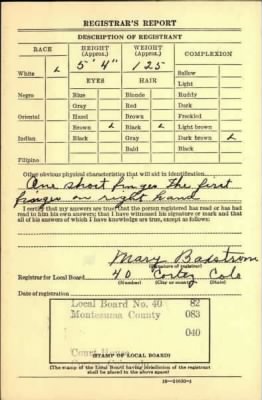 REGISTRAR'S REPORT
DESCRIPTION OF REGISTRANT
RACE HEIGHT (Approx.) WEIGHT (Approx.) COMPLEXION
5' 4" 125
White Sallow
EYES HAIR Light
Negro Blue Blonde Ruddy
Gray Red Dark
Oriental Hazel Brown Freckled
Brown Black Light brown
Indian Black Gray Dark brown
Bald Black
Filipino
Other obvious physical characteristics that will aid in identification
One short finger the first
finger on right hand
I certify that my answers are true; that the person registered has read or has had
read to him his own answers; that I have witnessed his signature or mark and that
all of his answers of which I have knowledge are true, except as follows:
Mary Badstrom
(Signature of registrar)
Registrar for Local Board 40 Cortez Colo
(Number) (City or county) (State)
Date of registration
Local Board No. 40 82
Montezuma County 083
040
Court House
(STAMP OF LOCAL BOARD)
(The stamp of the Local Board having jurisdiction of the registrant
shall be placed in the above space)